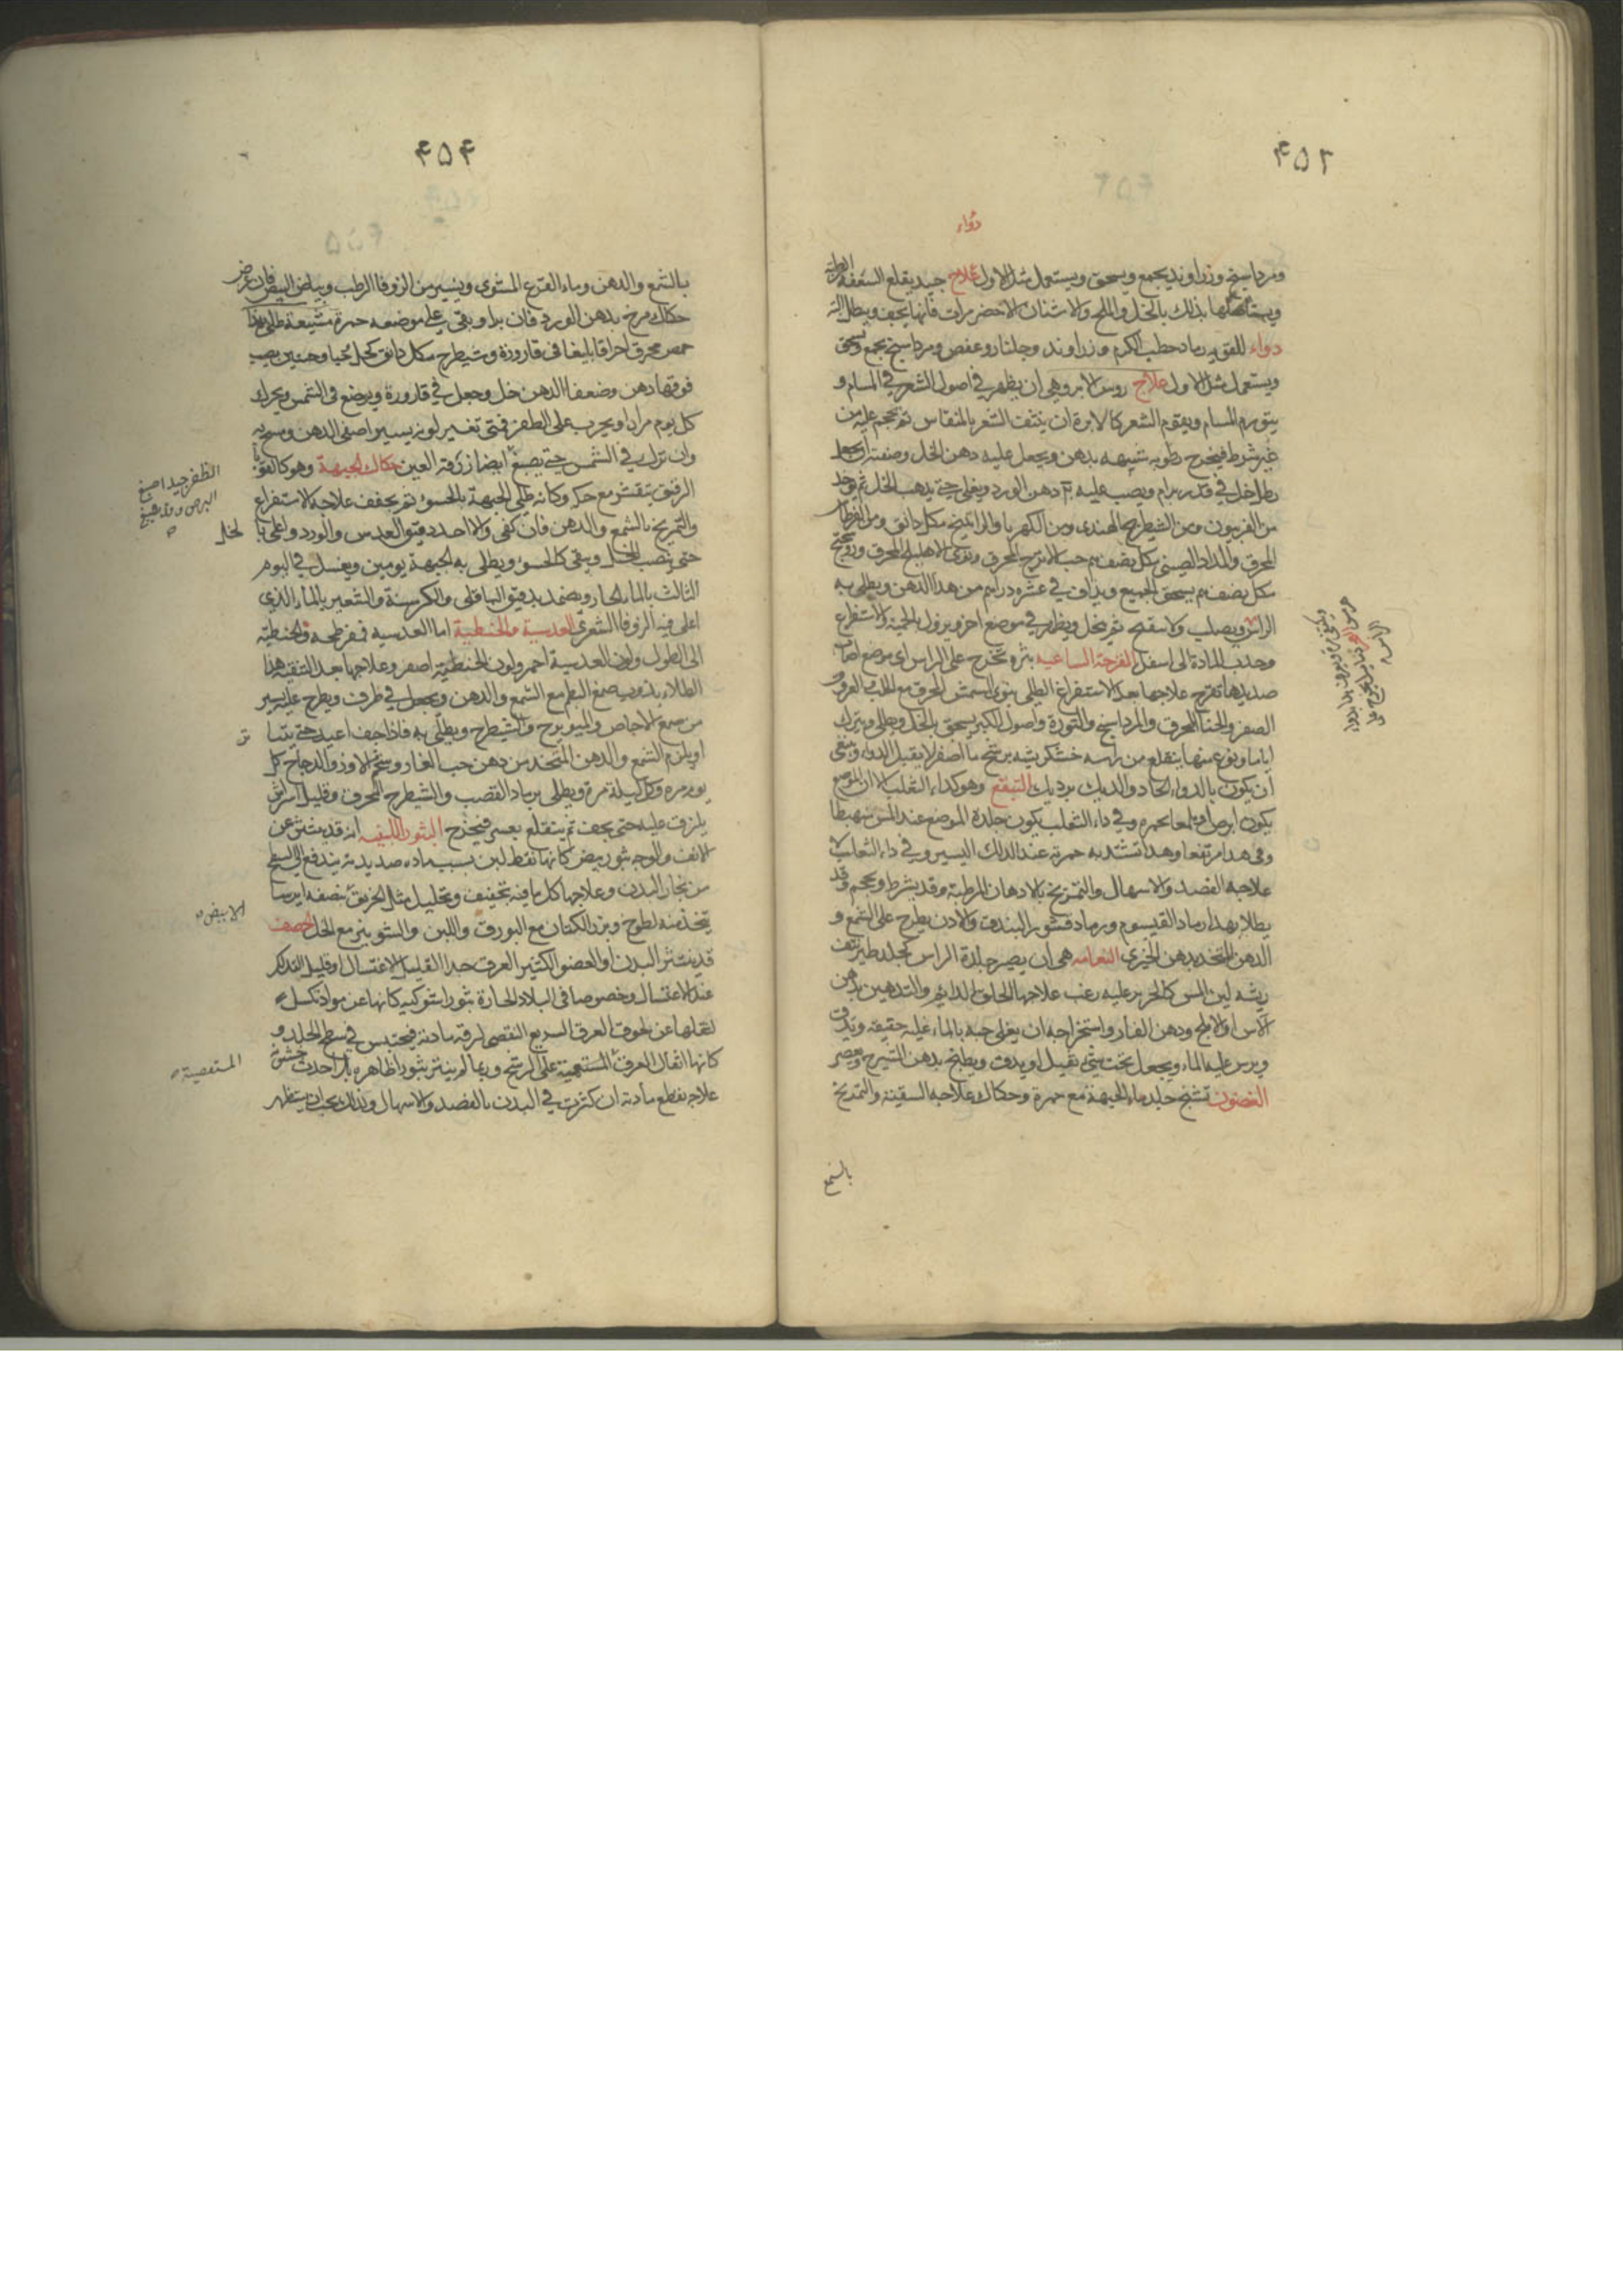 ۴۵۲
دواء
ومرداسنج وزراوند يجمع ويسحق ويستعمل مثل الاول علاج جيد يقلع السعفة الرطبة
بذلك بالخل والملح والاشنان الاخضر مرات فانها تجف ويطل
دواء للقوبه رماد حطب الكرم وزراوند وجلنار وعفص ومرداسنج يجمع ويسحق
ويستعمل مثل الاول علاج روس الابر وهي ان يظهر في اصول الشعر في المسام و
يتورم المسام ويقوم الشعر كالابرة ان ينتف الشعر بالمنقاش ثم يحجم عليه من
غير شرط فيخرج رطوبه شبيهه بدهن ويجعل عليه دهن الخل وصفته ان يجعل
رطل خل في قدر برام ويصب عليه دهن الورد ويغلى حتى يذهب الخل ثم يوخذ
من الفربيون ومن الشيطرج الهندى ومن الكهربا والراتينج مكل دانق ومن القرطاس
المحرق والمداد الصينى مكل نصف حب الاترج المحرق ونوى الاهليلج المحرق
مكل نصف يسحق الجميع ويذاف في عشره دراهم من هذا الدهن ويطلى به
الراس ويصلب ولا ينفتح ثم يخل ويظهر في موضع اخر ويزول بالحمية والاستفراغ
وجذب المادة الى اسفل القرحة الساعيه بثره تخرج على الراس اى موضع اصاب
صديدها تقرح علاجها بعد الاستفراغ الطلى بنوى المشمش المحرق مع
الصفر والحنا المحرق والمرداسنج والنورة واصول الكبر يسحق بالخل ويطلى ويترك
اياما ونوع منها ينقلع من راسه خشكريشه يرشح ما اصفر لا يقبل الدواء وينبغى
ان يكون بالدواء الحاد والديك برديك التبقع وهو كداء الثعلب الا ان الموضع
يكون ابرص لامعا بحمره وفي داء الثعلب يكون جلدة الموضع عند اللمس منهبطا
وفى هذا مرتفعا وهذا تشتد به حمرته عند الدلك اليسير وفي داء الثعلب لا
علاجه الفصد والاسهال والتمريخ بالادهان المرطبة وقد يشرط ويحجم وقد
يطلا بهذا رماد القيسوم ورماد قشور البندق والادن يطرح على الشمع و
الدهن المتخذ بدهن الخيرى النعامه هى ان يصير جلدة الراس كجلد طير نتف
ريشه لين المس كالحرير عليه زغب علاجها الحلق الدائم والتدهين بدهن
الآس او الاملج ودهن الغار واستخراجه ان يغلى حبه بالماء غليه خفيفه ويدق
ويرس عليه الماء ويجعل تحت شئ ثقيل او يدق ويطبخ بدهن الشيرج ويعصر
الغضون تشنج جلد ماء الجبهة مع حمرة وحكاك علاجه التنقية والتمريخ
بالشمع
۴۵۴
بالشمع والدهن وماء القرع المشوى ويسير من الزوفا الرطب وبياض البيض فان عرض
حكاك مرخ بدهن الورد فان برا وبقى على موضعه حمرة مشبعة طلى بهذا
حمص محرق احراقا بليغا فى قارورة وشيطرج مكل دانق
فوقها دهن وضعف الدهن خل وجعل في قارورة ويوضع فى الشمس ويحرك
كل يوم مرارا ويجرب على الظفر فمتى تغير لونه يسيرا صفى الدهن ومسح به
وان ترك في الشمس حتى يصبغ ابضا زرقة العين حكاك الجبهة وهو كالقوبا
الظفر جيدا صبغ
البرص
الرقيق يتقشر مع حكه وكانه طلى الجبهة بالحسو ثم يجفف علاجه الاستفراغ
والتمريخ بالشمع والدهن فان كفى والا اخذ دقيق العدس والورد واغلى بالخل
حتى ينصب الخل ويبقى كالحسو ويطلى به الجبهة يومين ويغسل في اليوم
الثالث بالماء الحار ويضمد بدقيق الباقلى والكرسنة والشعير بالماء الذى
اغلى فيه الزوفا الشعرى العدسية والحنطية اما العدسيه فمفرطحه والحنطيه
الى الطول ولون العدسية احمر ولون الحنطية اصفر وعلاجها بعد التنقية هذا
الطلاء يذوب صمغ البطم مع الشمع والدهن ويجعل في ظرف ويطرح عليه يسير
من صمغ الاجاص والميويزج والشيطرج ويطلى به فاذا جف اعيد حتى
او يلزم الشمع والدهن المتخذ من دهن حب الغار وشحم الاوز والدجاج كل
يوم مره وكل ليلة مرة ويطلى برماد القصب والشيطرج المحرق وقليل اشراش
يلزق عليه حتى يجف ثم ينقلع بعسر فيخرج البثور اللبنيه انه قد ينبثق عن
الانف والوجه بثور بيض كانها نقط لبن بسبب ماده صديديه يندفع الى السطح
من بخار البدن وعلاجها كل ما فيه تجفيف وتحليل مثل الخربق بنصفه ايرسا
الابيض
يتخذ منه لطوخ وبزر الكتان مع البورق واللبن والشونيز مع الخل الحصف
قد ينتثر البدن او العضو الكثير العرق جدا القليل الاغتسال او قليل التدلك
عند الاغتسال وخصوصا فى البلاد الحارة بثورا شوكيه كانها عن مواد تكسل
لثقلها عن لحوق العرق السريع التفصى لرقة مادته فيحتبس في سطح الجلد و
كانها اثقال العرق المستعصية على الرشح وربما لم ينتثر بثورا ظاهره بل احدث خشونة
المتعصية
علاجه قطع مادته ان كثرت في البدن بالفصد والاسهال وذلك يجب ان يستظهر